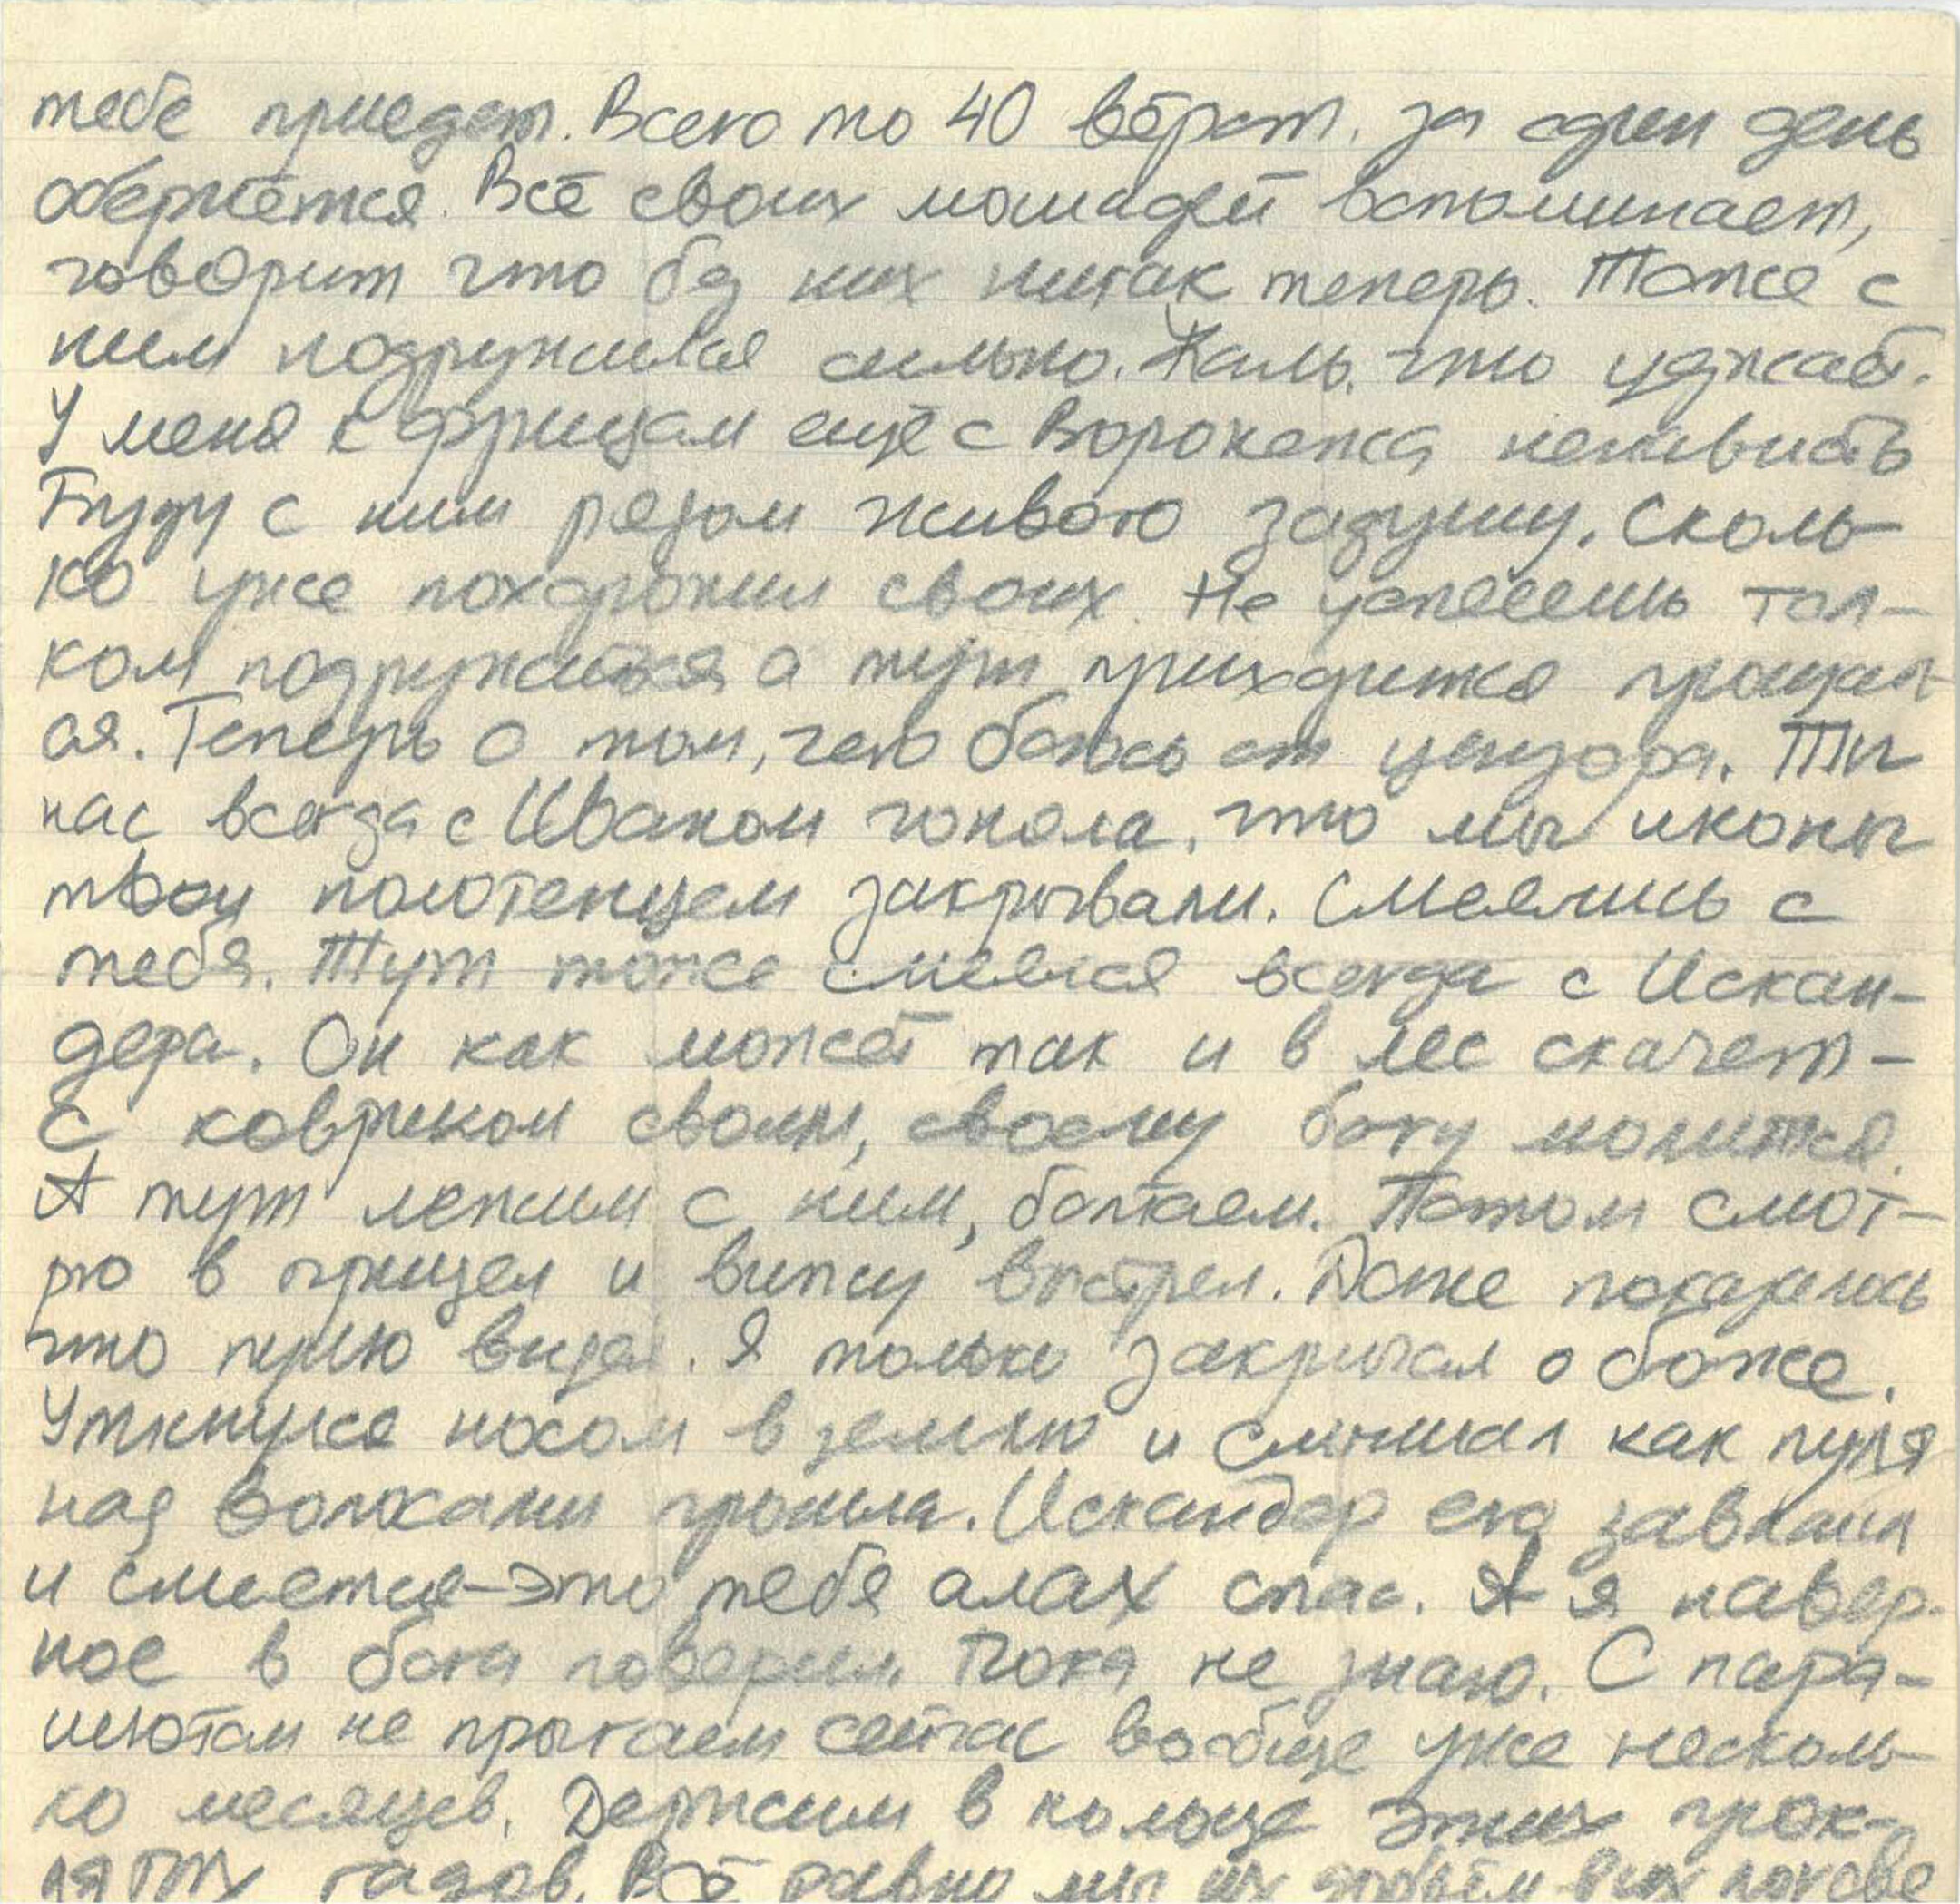 тебе приедет. Всего то 40 вёрст. За один день
обернётся. Всё своих лошадей вспоминает,
говорит что без них никак теперь. Тоже с
ним подружился сильно. Жаль, что уезжает.
У меня к фрицам ещё с Воронежа ненависть
Буду с ним рядом живого задушу. Сколь-
ко уже похоронил своих. Не успеешь тол-
ком подружиться а тут приходится прощать-
ся. Теперь о том, чего боюсь от цензора. Ты
нас всегда с Иваном гоняла, что мы иконы
твои полотенцем закрывали. Смеялись с
тебя. Тут тоже смеялся всегда с Искан-
дера. Он как может так и в лес скачет -
с ковриком своим, своему богу молится.
А тут лежим с ним, болтаем. Потом смот-
рю в прицел и вижу выстрел. Даже показалось
что пулю видел. Я только закричал о боже.
Уткнулся носом в землю и слышал как пуля
над волосами прошла. Искандер его завалил
и смеется-это тебя алах спас. А я навер-
ное в бога поверил. Пока не знаю. С пара-
шютом не прыгаем сейчас вообще уже несколь-
ко месяцев. Держим в кольце этих прок-
лятых гадов. Всё равно мы их добьём всех